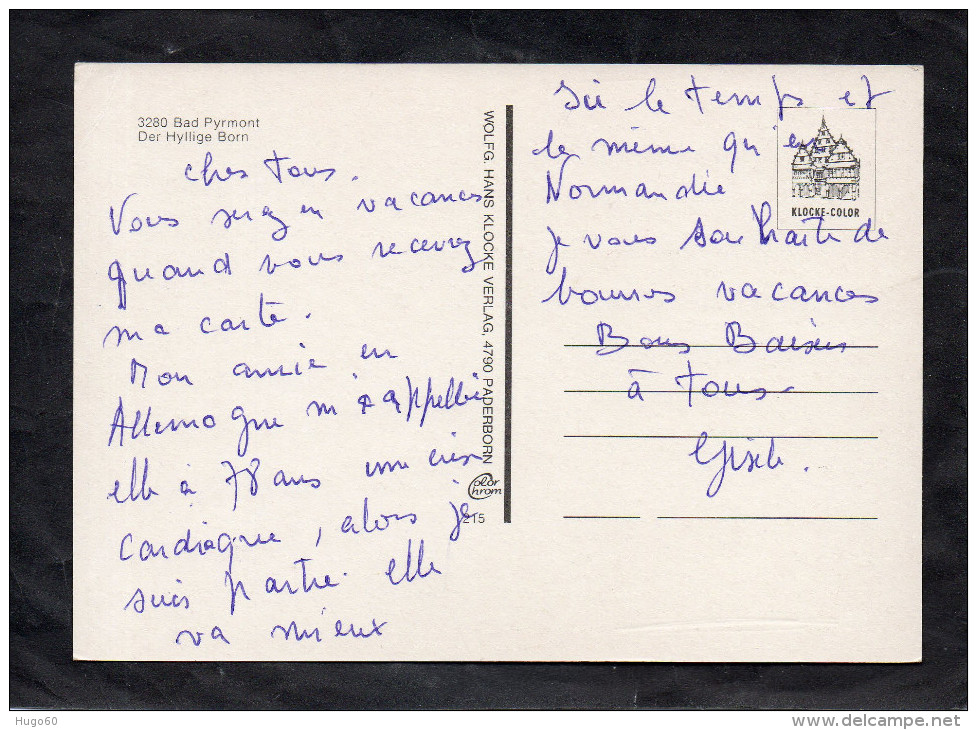 3280 Bad Pyrmont
Der Hyllige Born
Chers tous.
Vous serez en vacances
quand vous recevrez
ma carte.
Mon amie en
Allemagne m'a appellé
elle à 78 ans une crise
cardiaque, alors je
suis partie. elle
va mieux
WOLFG. HANS KLOCKE VERLAG, 4790 PADERBORN
Color Chrom
215
Ici le temps et
le même qu'en
Normandie
je vous souhaite de
bonnes vacances
Bons Baisers
à tous
Gisèle.
KLOCKE-COLOR
Hugo60
www.delcampe.net